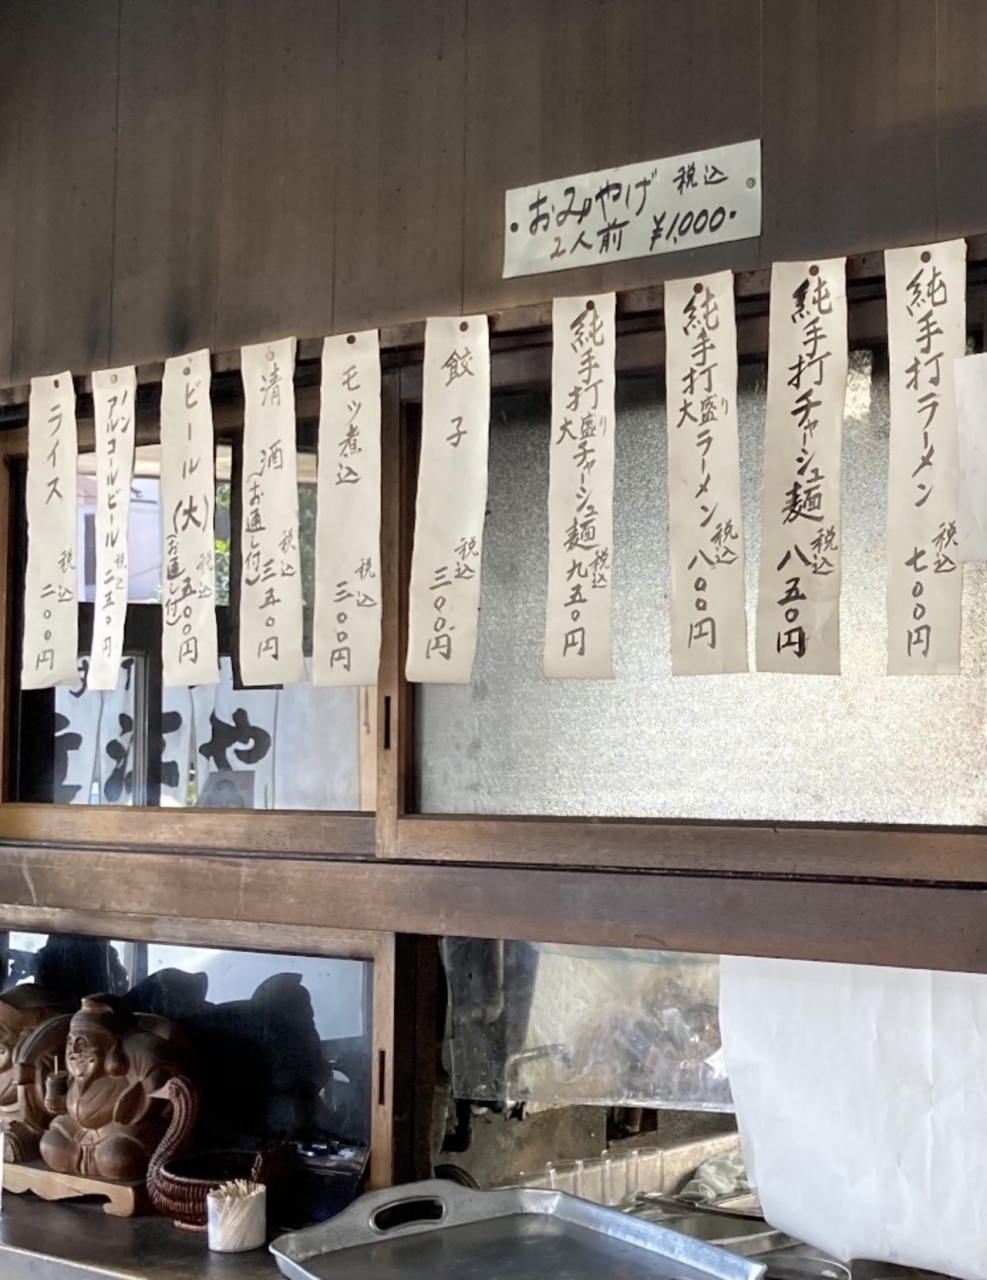 おみやげ 税込
2人前 ¥1,000-
純手打ラーメン 税込 七〇〇円
純手打チャーシュ麺 税込 八五〇円
純手打大盛りラーメン 税込 八〇〇円
純手打大盛りチャーシュ麺 税込 九五〇円
餃子 税込 三〇〇円
モツ煮込 税込 三〇〇円
清酒(お通し付) 税込 三五〇円
ビール(大)(お通し付) 税込 五〇〇円
ノンアルコールビール 税込 二五〇円
ライス 税込 二〇〇円